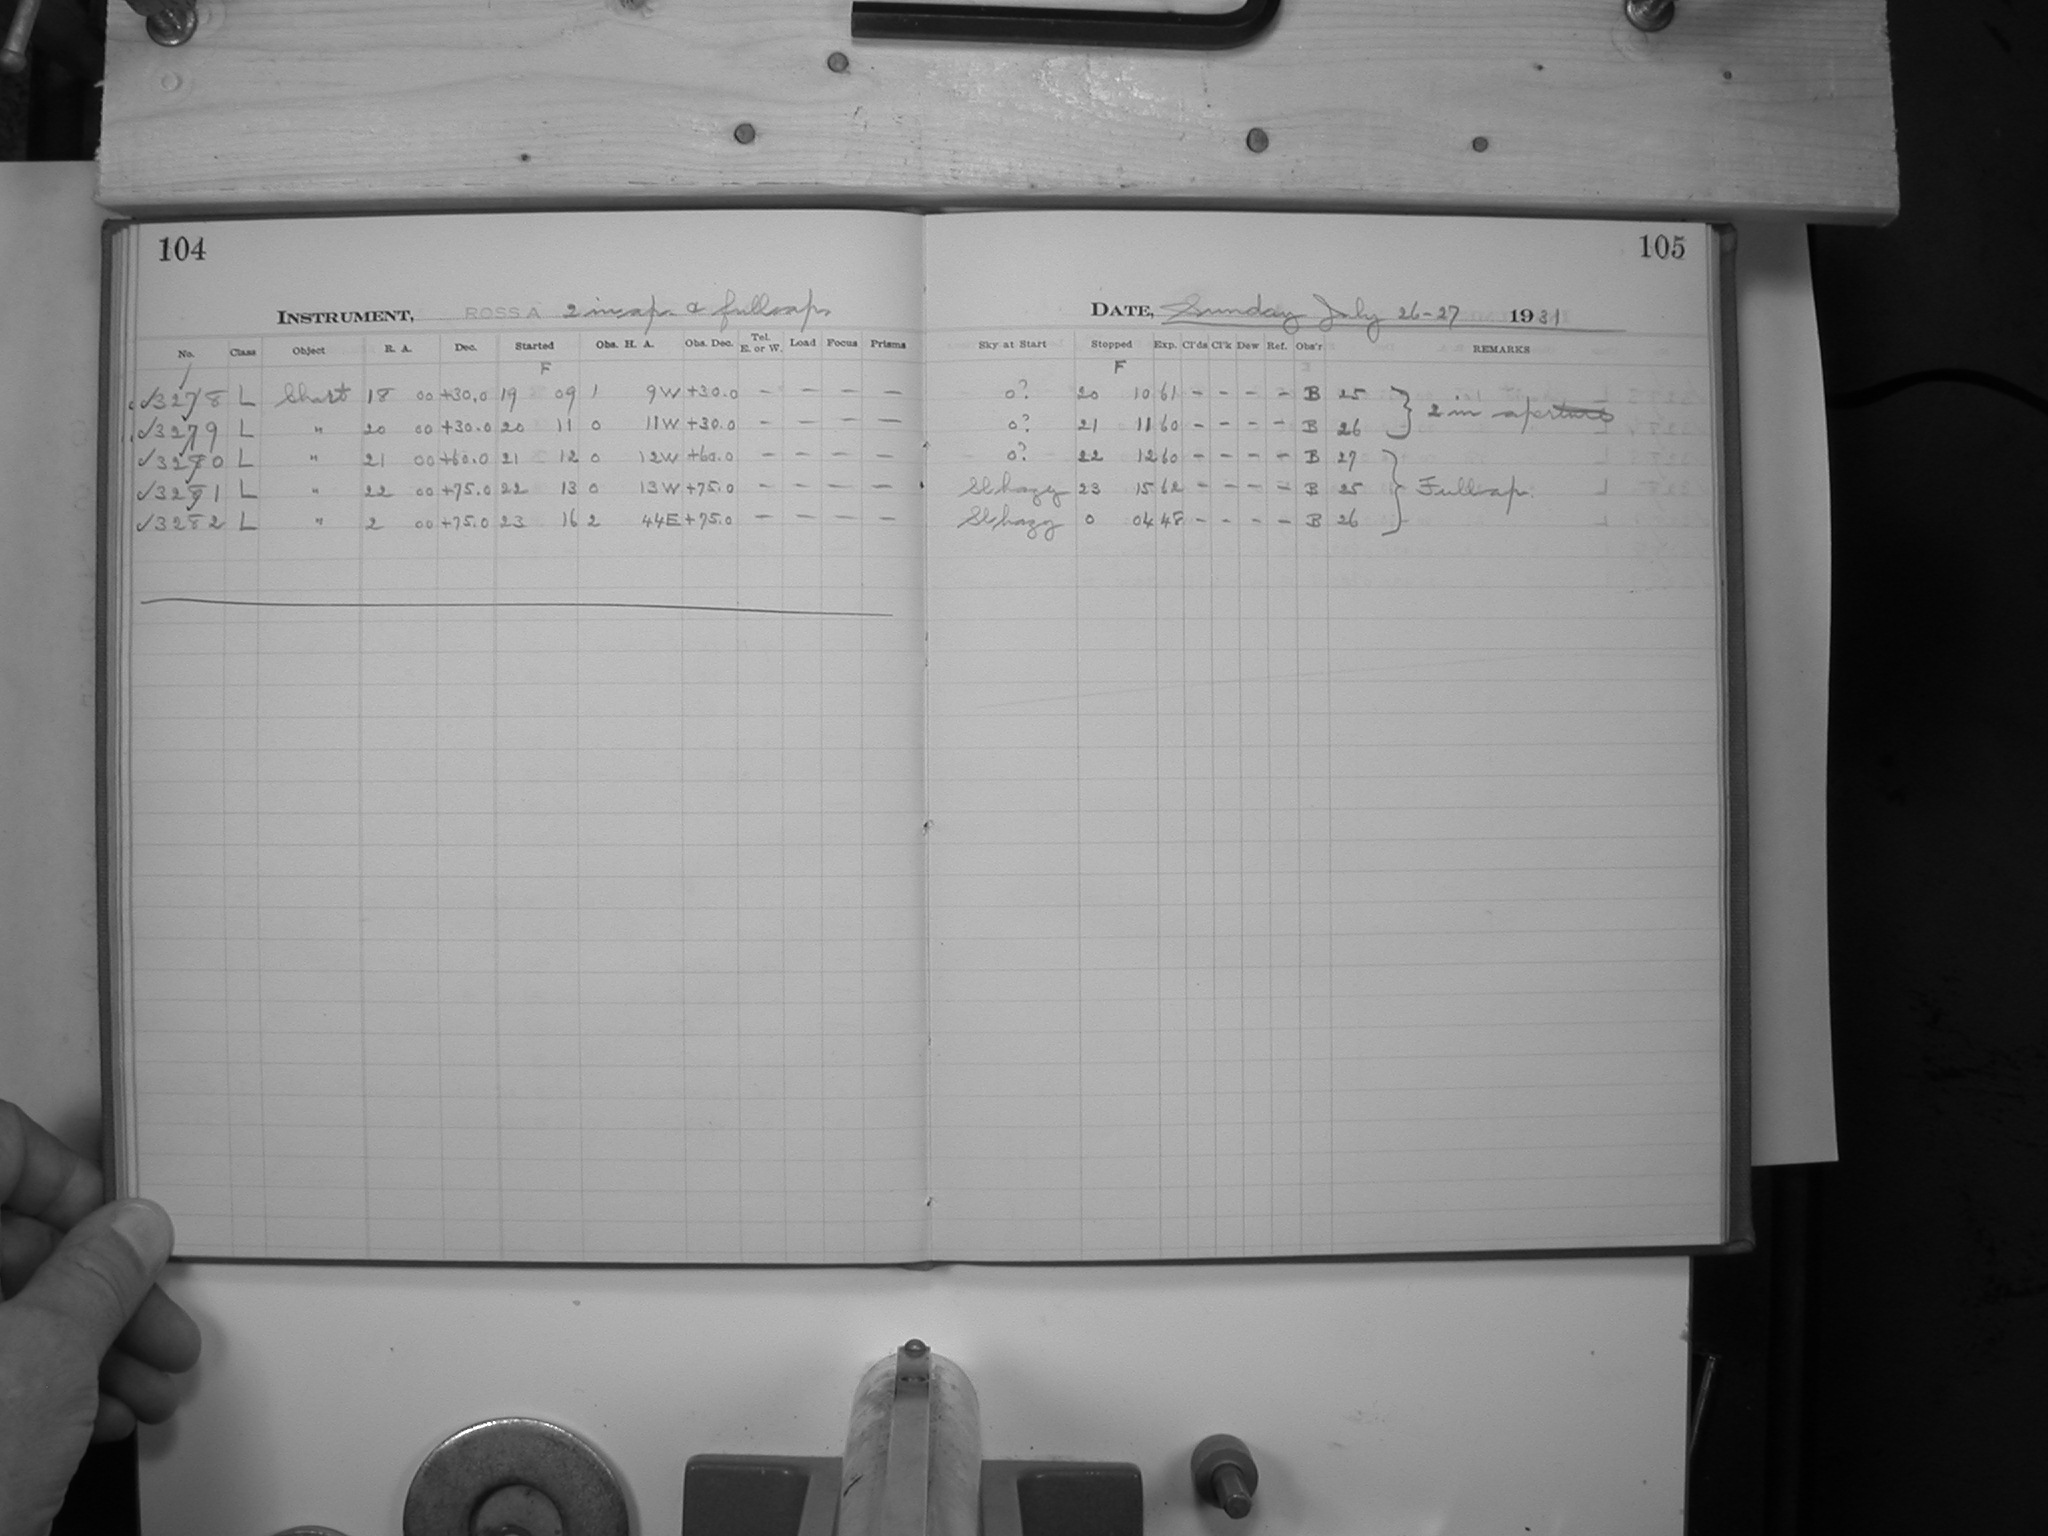 104
105
INSTRUMENT, ROSS A 2 in. ap. & full ap.
DATE, Sunday July 26-27 1931
No. Class Object R. A. Dec. Started Obs. H. A. Obs. Dec. Tel. E. or W. Load Focus Prisms Sky at Start Stopped Exp. Cl'ds Cl'k Dew Ref. Obs'r REMARKS
F F
✓3278 L Chart 18 00 +30.0 19 09 1 9W +30.0 — — — — 0? 20 10 61 - - - - B 25
2 in ap
✓3279 L " 20 00 +30.0 20 11 0 11W +30.0 — — — — 0? 21 11 60 - - - - B 26
✓3280 L " 21 00 +60.0 21 12 0 12W +60.0 — — — — 0? 22 12 60 - - - - B 27
✓3281 L " 22 00 +75.0 22 13 0 13W +75.0 — — — — Sl hazy 23 15 62 - - - - B 25
Full ap.
✓3282 L " 2 00 +75.0 23 16 2 44E +75.0 — — — — Sl hazy 0 04 48 - - - - B 26